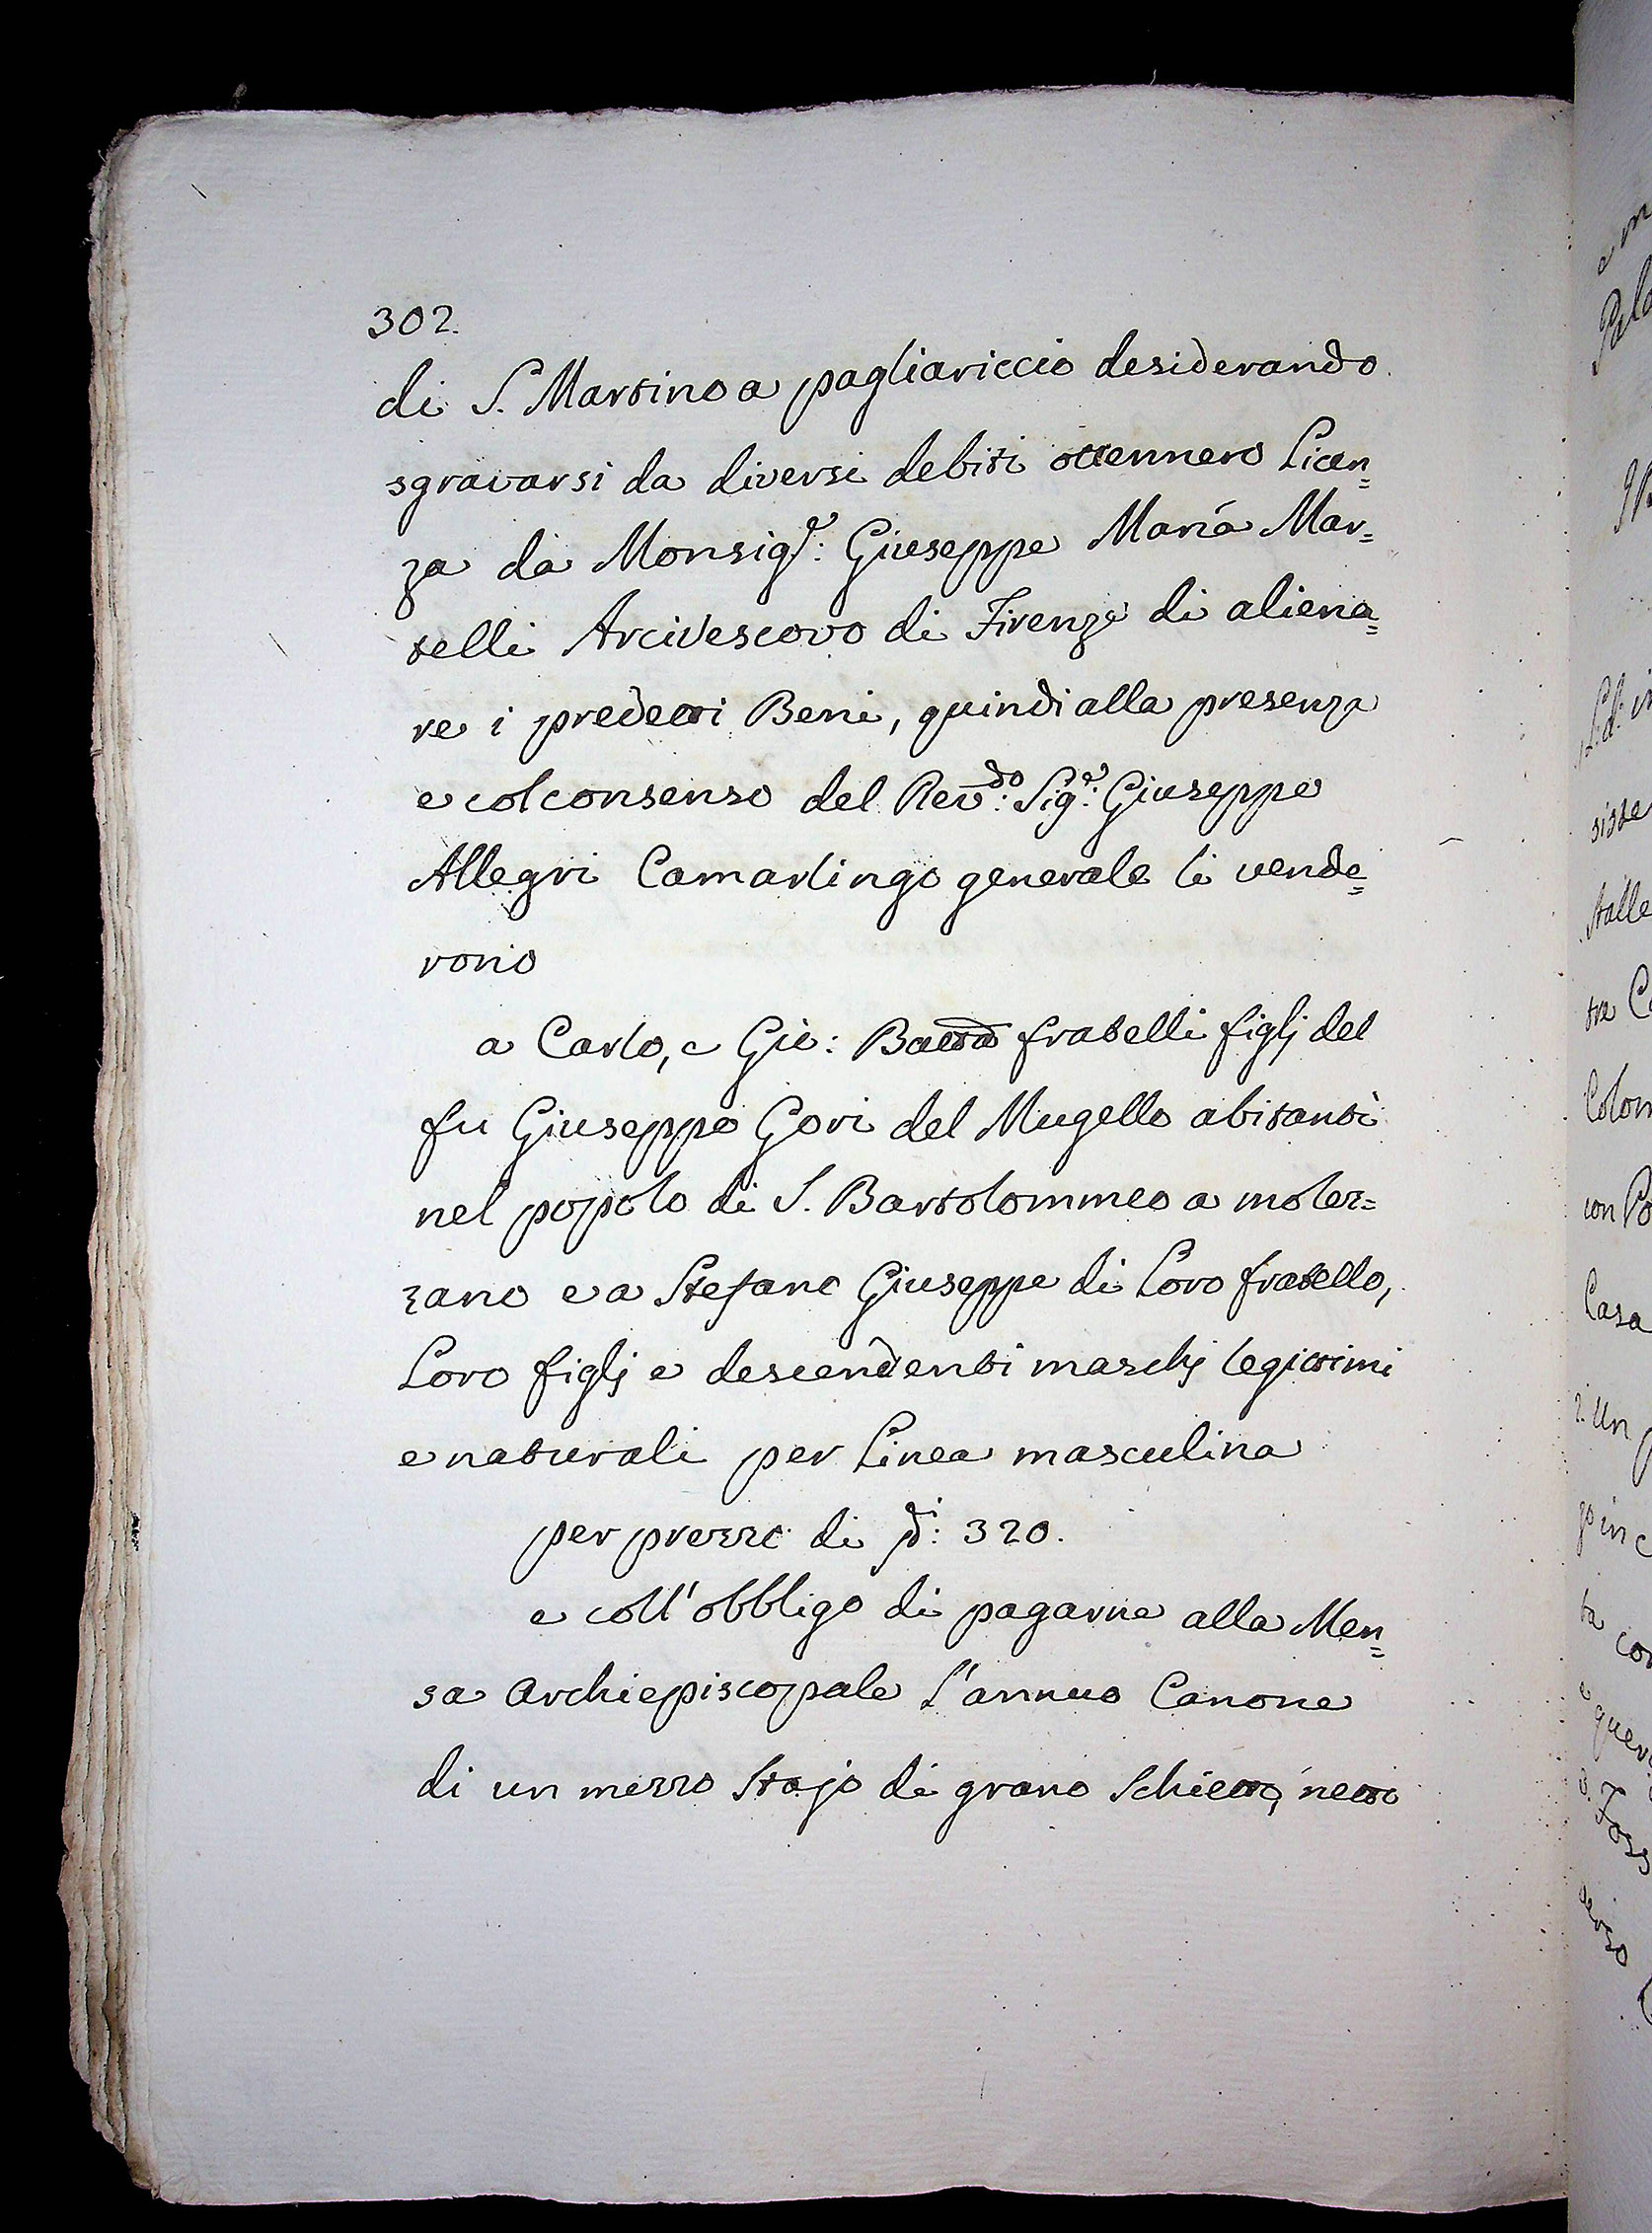 302.
di S. Martino a pagliariccio desiderando
sgravarsi da diversi debiti ottennero Licen=
za da Monsig.e: Giuseppe Maria Mar=
telli Arcivescovo di Firenze di aliena=
re i predetti Beni, quindi alla presenza
e col consenso del Rev.do: Sig.e: Giuseppe
Allegri Camarlingo generale li vende=
rono
a Carlo, e Gio: Batta fratelli figlj del
fu Giuseppe Gori del Mugello abitanti
nel popolo di S. Bartolommeo a molez=
zano e a Stefano Giuseppe di Loro fratello,
Loro figlj e descendenti maschj legittimi
e naturali per Linea masculina
per prezzo di : 320.
e coll'obbligo di pagarne alla Men=
sa Archiepiscopale l'annuo Canone
di un mezzo Stajo di grano Schietto, netto
siste
Stalle
tre
con Po
Casa
2. Un